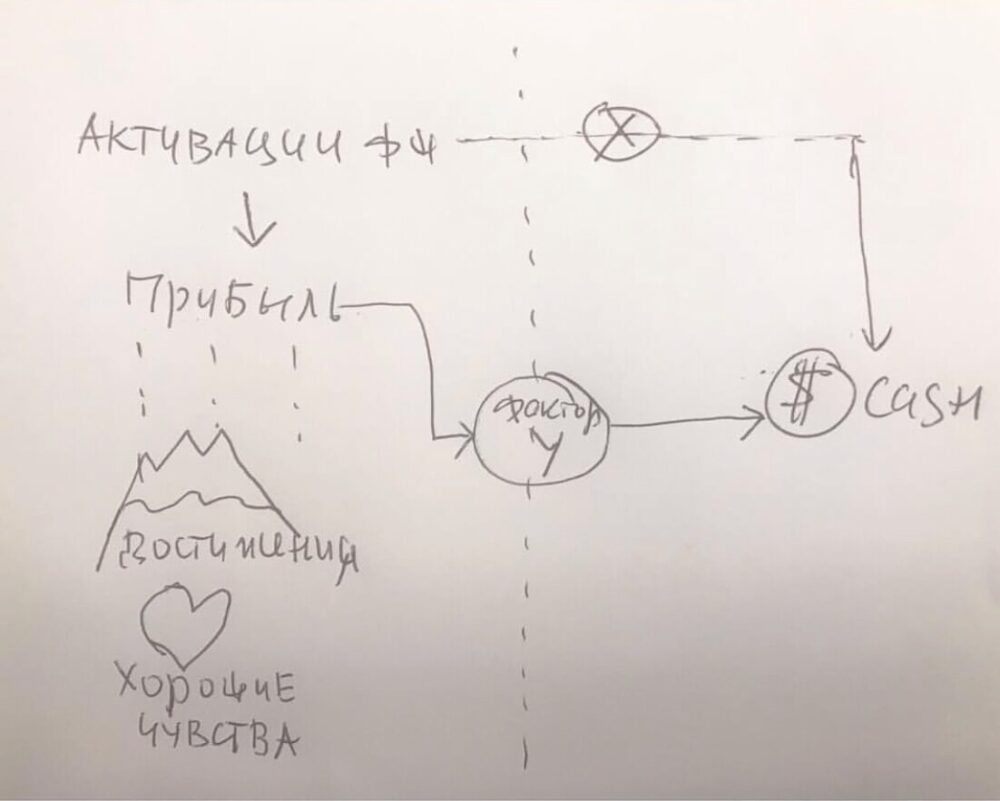 АКТИВАЦИИ ФЧ
X
Прибыль
фактор
У
$ CASH
Достижения
Хорошие
чувства